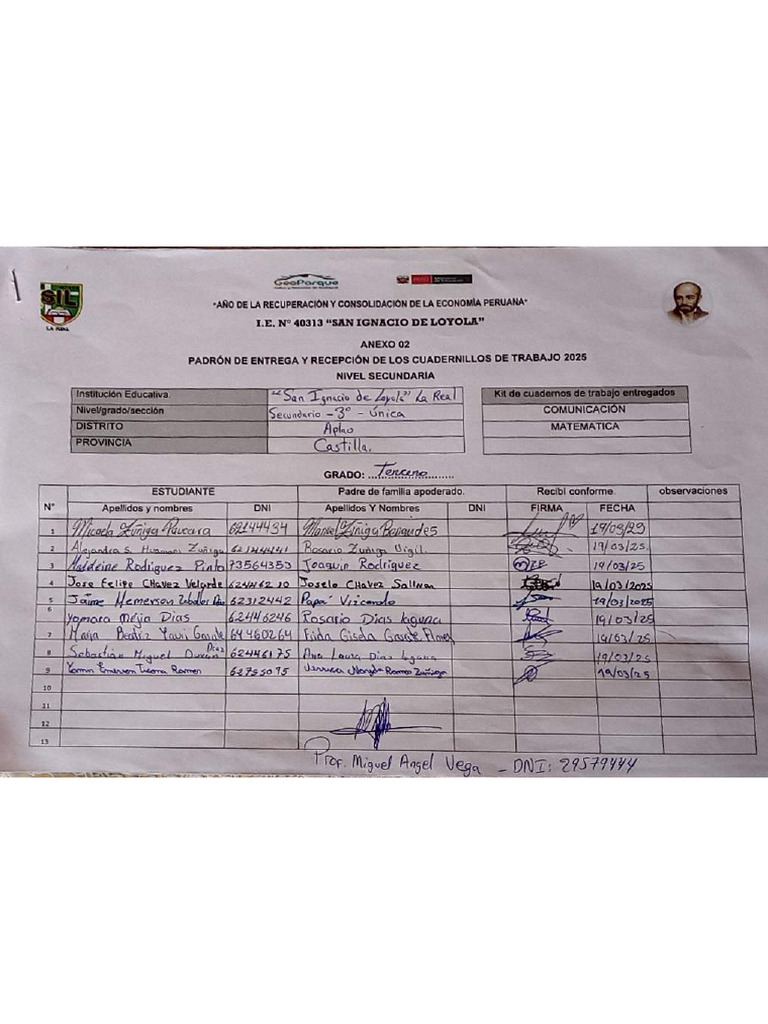 SIL
LA REAL
GeoParque
"AÑO DE LA RECUPERACIÓN Y CONSOLIDACIÓN DE LA ECONOMÍA PERUANA"
I.E. N° 40313 "SAN IGNACIO DE LOYOLA"
ANEXO 02
PADRÓN DE ENTREGA Y RECEPCIÓN DE LOS CUADERNILLOS DE TRABAJO 2025
NIVEL SECUNDARIA
Institución Educativa "San Ignacio de Loyola" La Real
Nivel/grado/sección Secundario - 3° - única
DISTRITO Aplao
PROVINCIA Castilla.
Kit de cuadernos de trabajo entregados
COMUNICACIÓN
MATEMATICA
GRADO: Tercero
N° ESTUDIANTE Padre de familia apoderado. Recibí conforme. observaciones
Apellidos y nombres DNI Apellidos Y Nombres DNI FIRMA FECHA
1 Micaela Zúñiga 62144434 Manuel Zúñiga 19/03/25
2 Alejandra S. Huamani Zuñiga Rosario Zuñiga Vigil. 19/03/25
3 Madeleine Rodriguez Pinto 73564353 Joaquin Rodriguez 19/03/25
4 Jose Felipe Chavez Velarde 62446210 Joselo Chavez 19/03/2025
5 Jaime Hemerson Zeballos 62312442 Papá Vizcardo 19/03/2025
6 Yomara Mejia Dias 62446246 Rosario Dias laguna 19/03/25
7 Maria Beatriz Yauri 61460264 Frida Gisela Flores 19/03/25
8 Sebastián Miguel Durán Diaz 62446175 Ana Laura Dias laguna 19/03/25
9 Emerson Ticona Ramos 62755095 Ramos Zuñiga 19/03/25
10
11
12
13
Prof. Miguel Angel Vega - DNI: 29579444